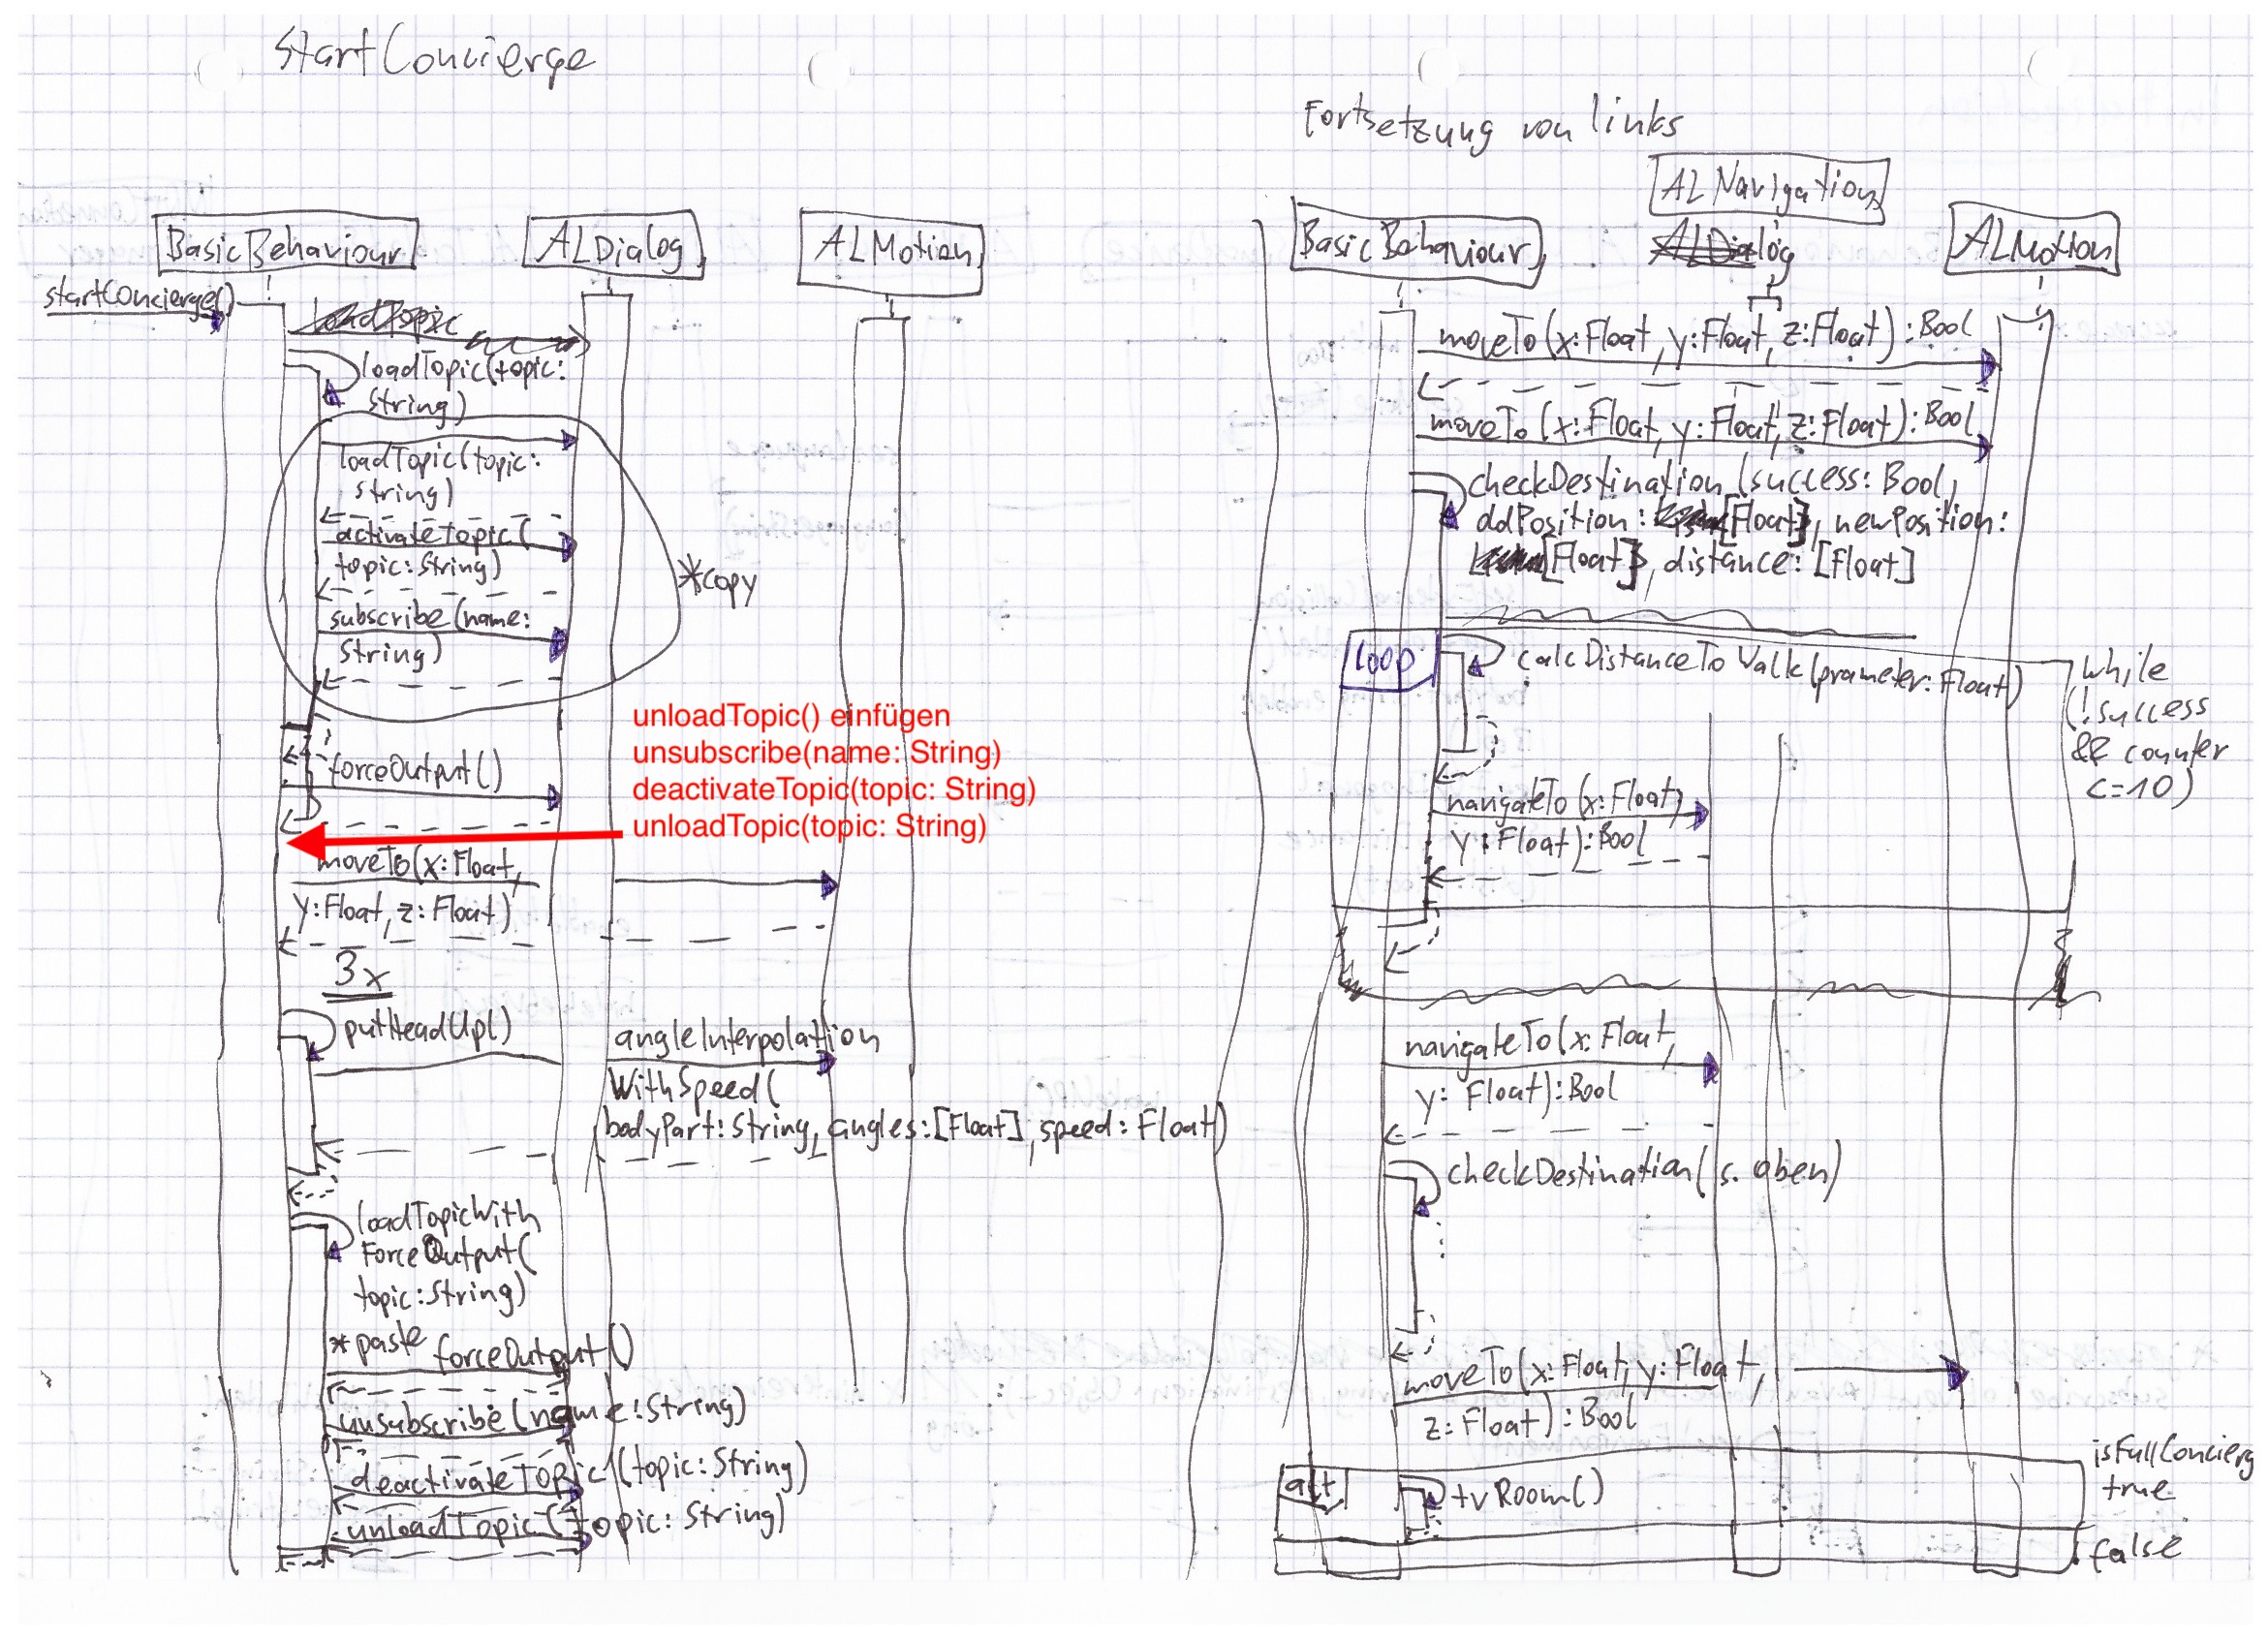 StartConcierge
BasicBehaviour
ALDialog
ALMotion
startConcierge()
loadTopic
loadTopic(topic:
String)
loadTopic(topic:
String)
activateTopic(
topic:String)
subscribe(name:
String)
*copy
unloadTopic() einfügen
unsubscribe(name: String)
deactivateTopic(topic: String)
unloadTopic(topic: String)
forceOutput()
moveTo(x:Float,
y:Float, z:Float)
3x
putHeadUp()
angleInterpolation
WithSpeed(
bodyPart:String, angles:[Float], speed:Float)
loadTopicWith
ForceOutput(
topic:String)
*paste forceOutput()
unsubscribe(name:String)
deactivateTopic(topic:String)
unloadTopic(topic:String)
Fortsetzung von links
BasicBehaviour
ALNavigation
ALDialog
ALMotion
moveTo(x:Float, y:Float, z:Float):Bool
moveTo(x:Float, y:Float, z:Float):Bool
checkDestination(success: Bool,
oldPosition: [Float], newPosition:
[Float], distance: [Float]
loop
calcDistanceToWalk(prameter:Float)
while
(!success
&& counter
<=10)
navigateTo(x:Float,
y:Float):Bool
navigateTo(x:Float,
y: Float):Bool
checkDestination(s. oben)
moveTo(x:Float, y:Float,
z:Float):Bool
alt
tvRoom()
isFullConcierg
true
false